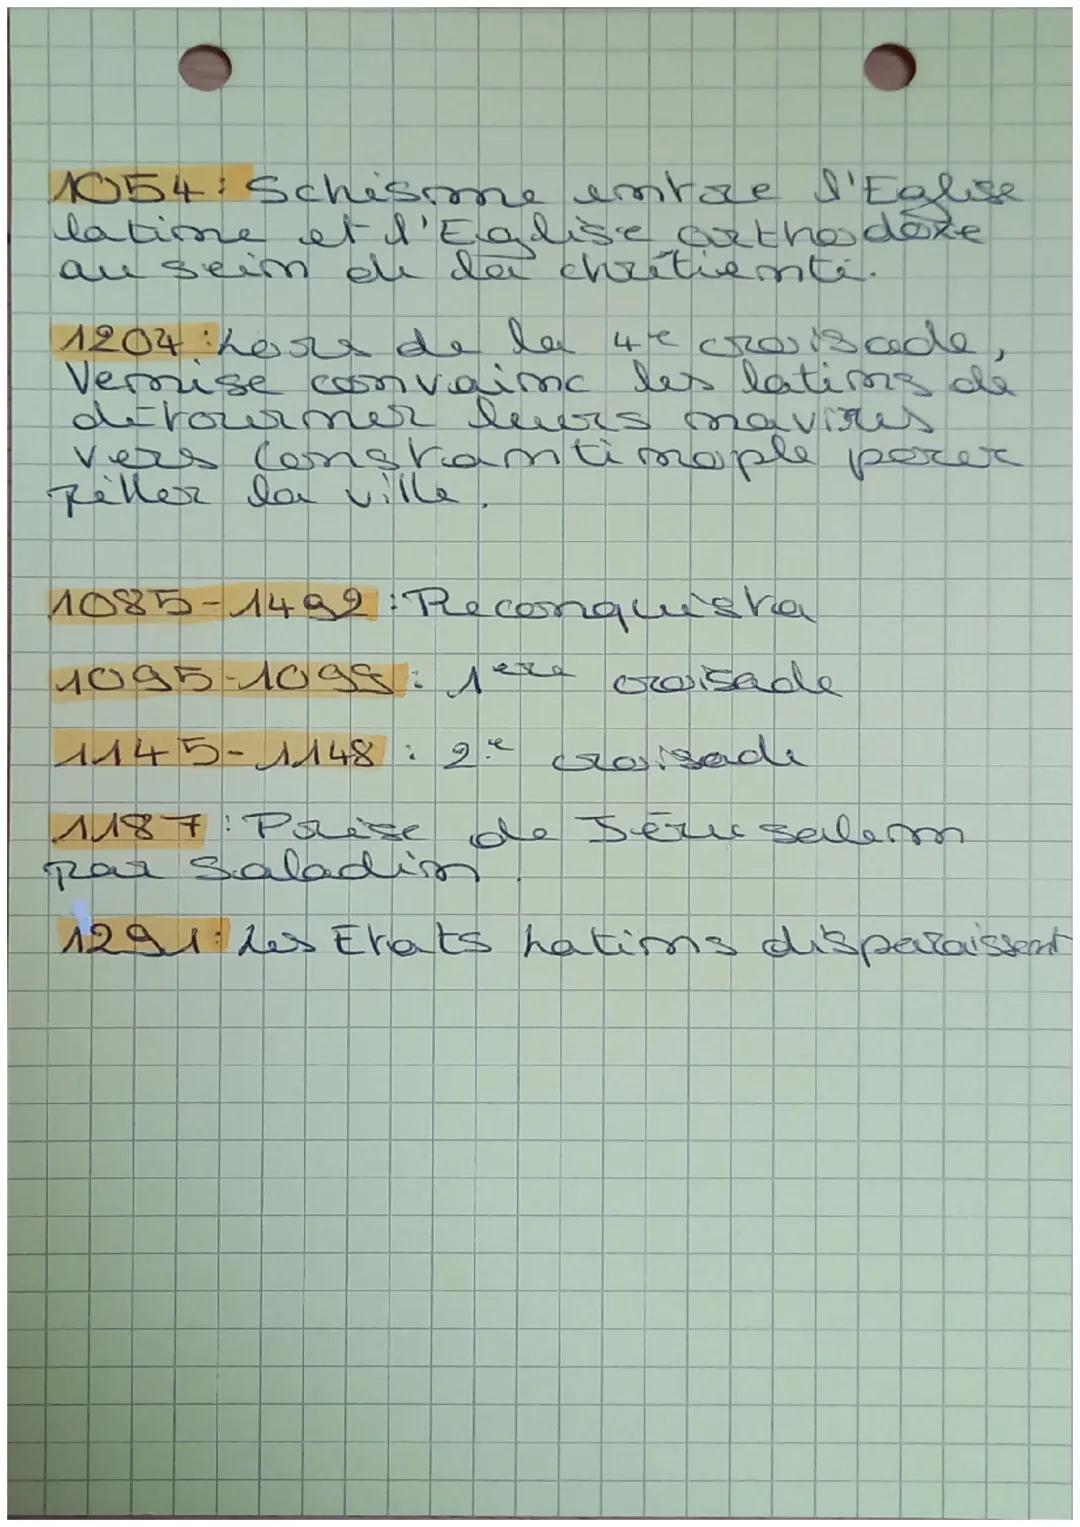 1054 : Schisme entre l'Eglise
latine et l'Eglise orthodoxe
au sein de la chrétienté.
1204 : Lors de la 4e croisade,
Venise convainc les latins de
détourner leurs navires
vers Constantinople pour
piller la ville.
1085-1492 : Reconquista
1095-1099 : 1ere croisade
1145-1148 : 2e croisade
1187 : Prise de Jérusalem
par Saladin.
1291 : Les Etats Latins disparaissent